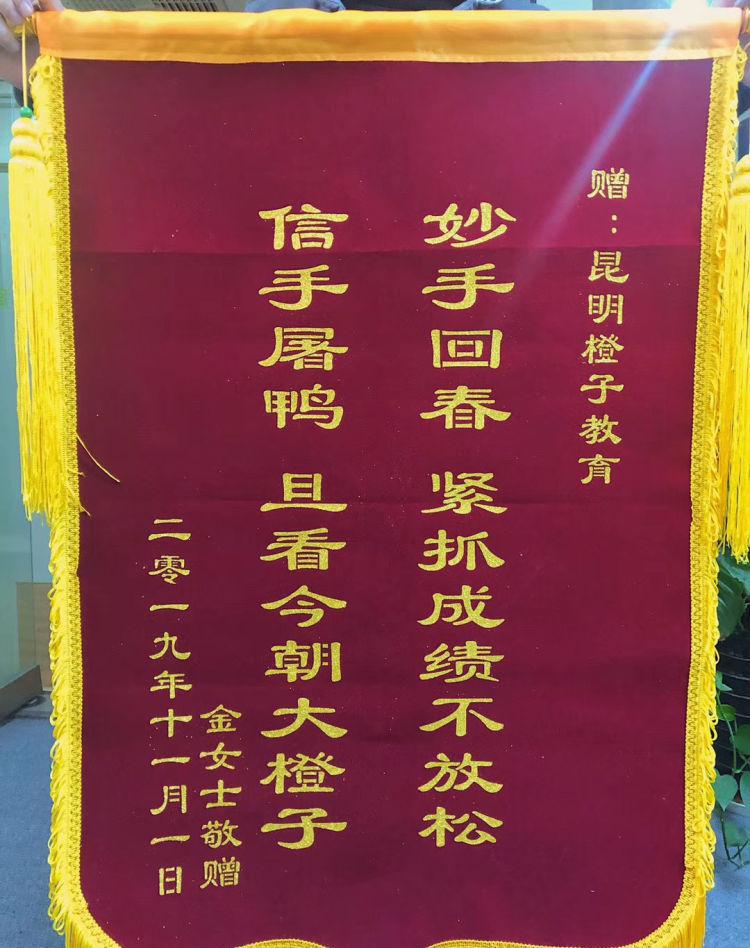 赠：昆明橙子教育
妙手回春 紧抓成绩不放松
信手屠鸭 且看今朝大橙子
金女士敬赠
二零一九年十一月一日